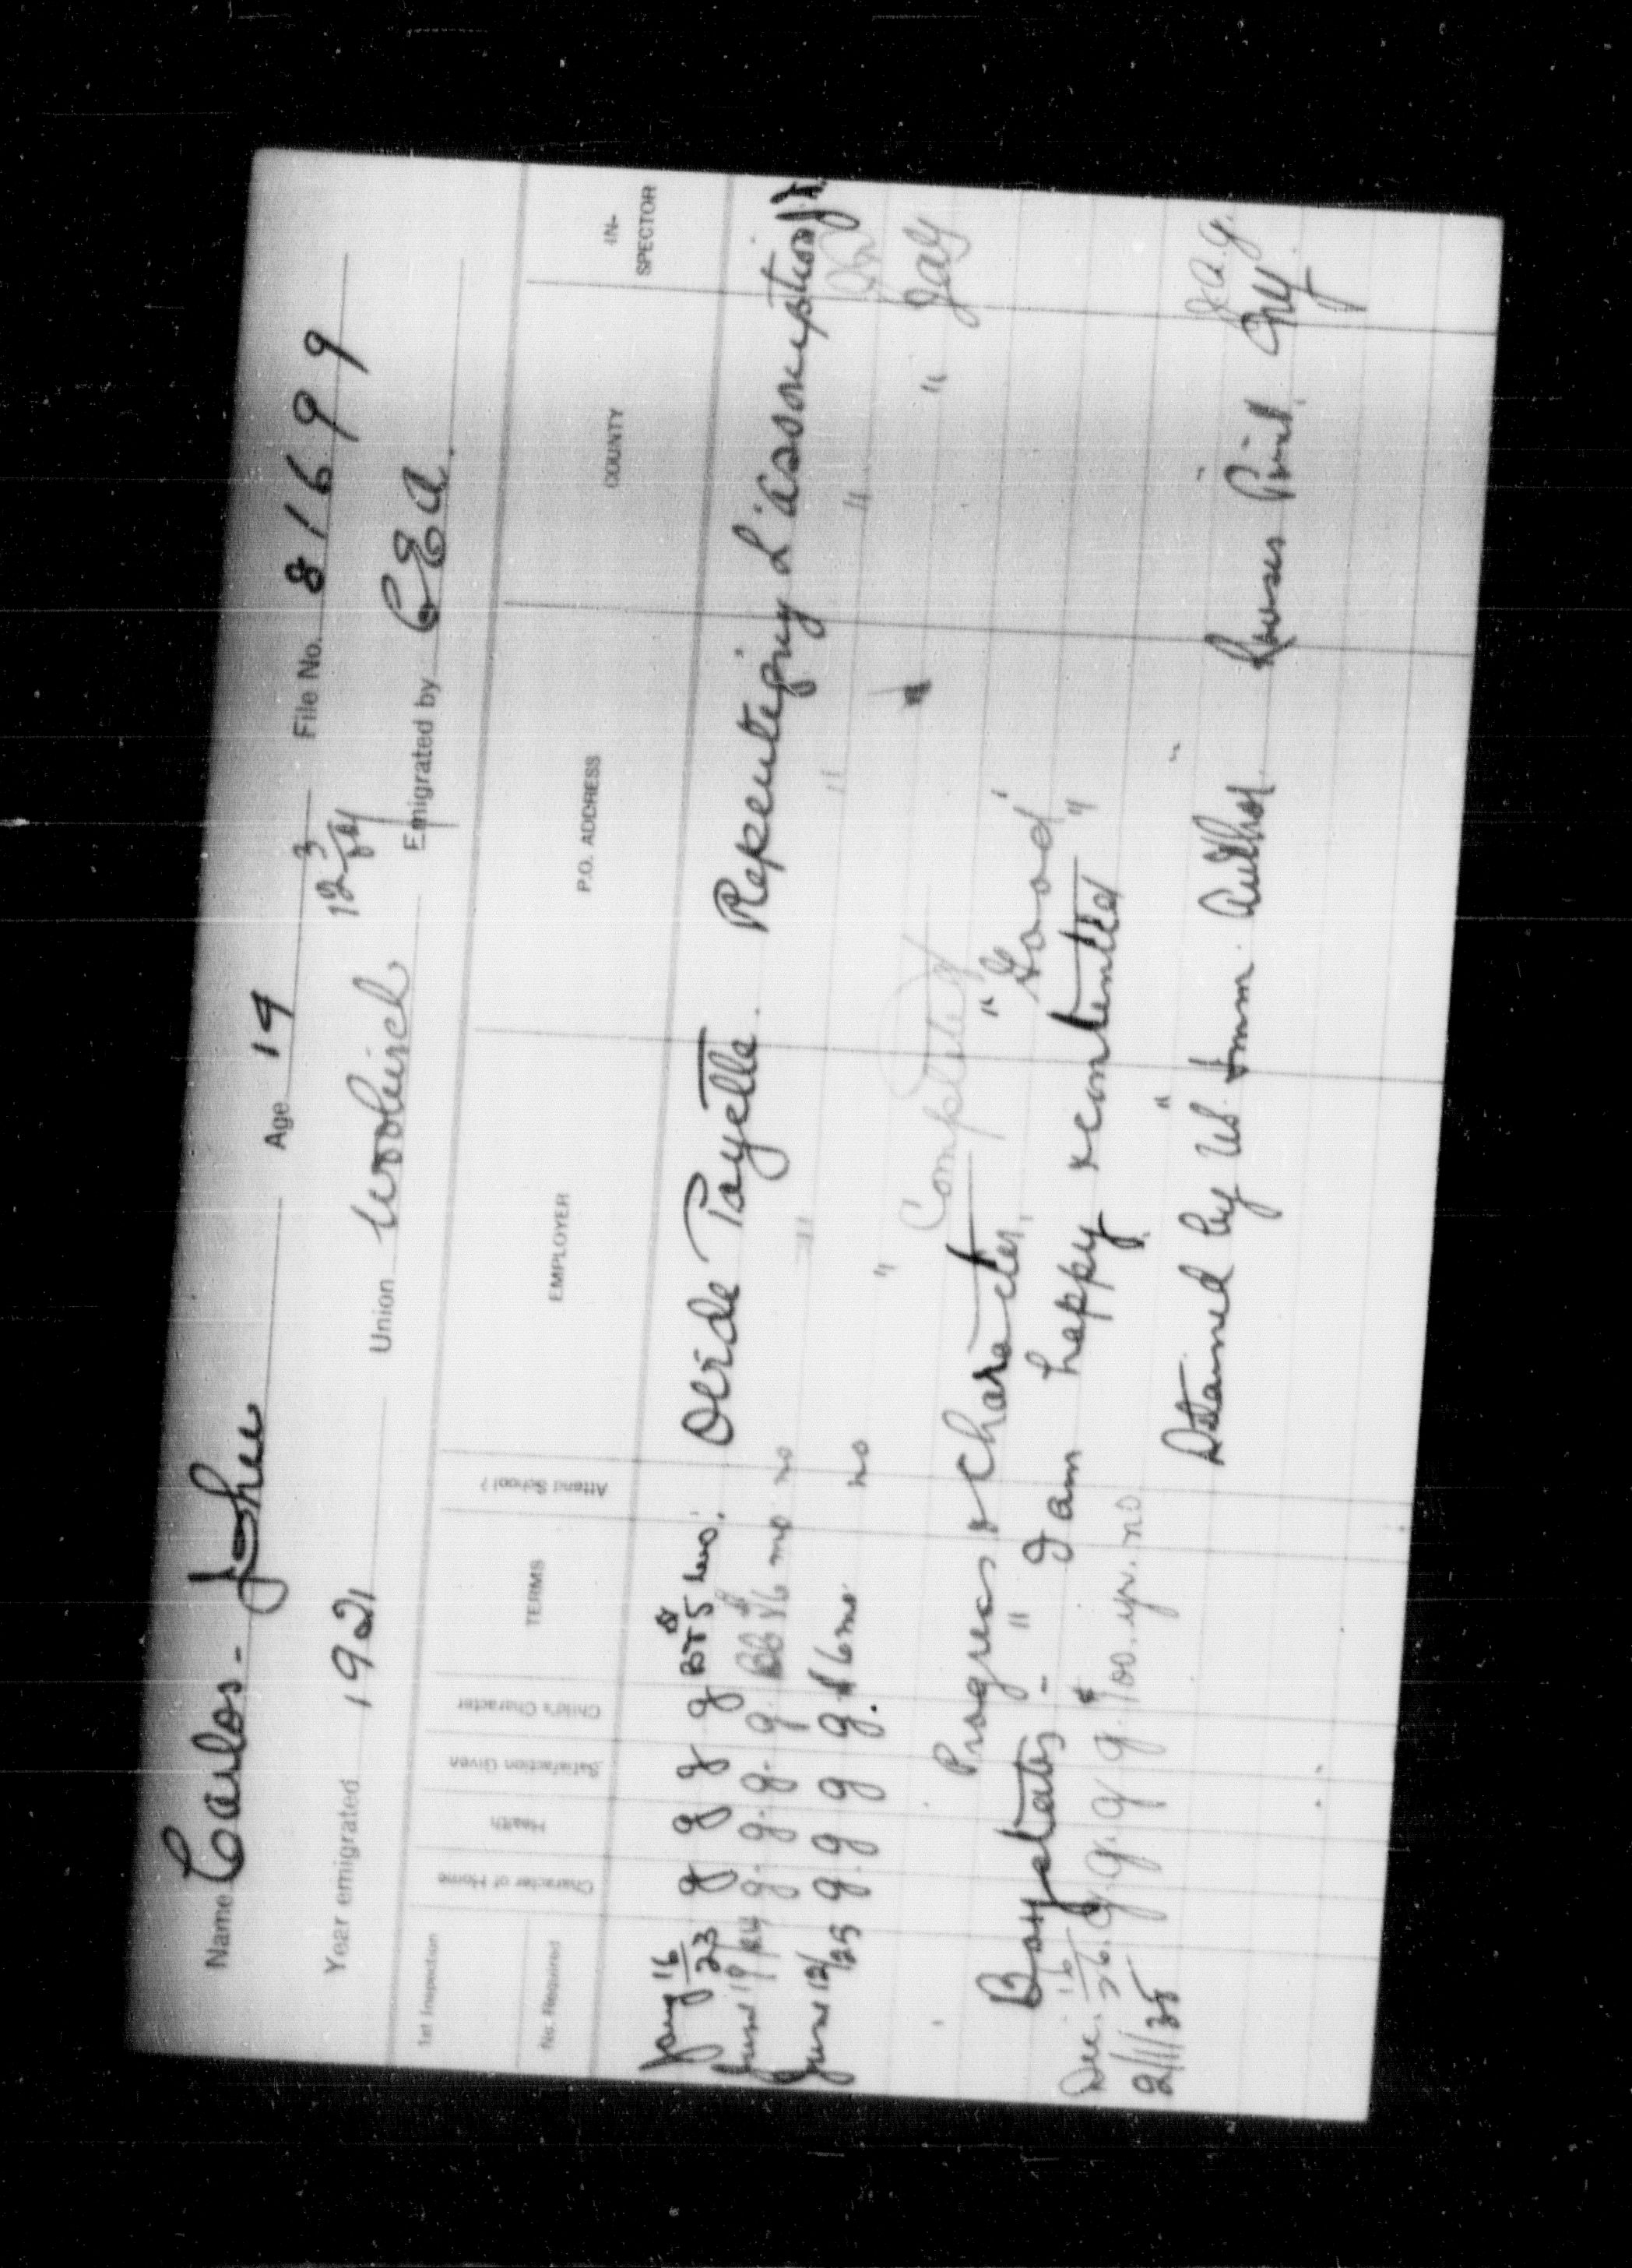 Name Carlos - John Age 14 File No. 81699
Year emigrated 1921 Union Woolwich 12 3/24 Emigrated by C E A.
1st Inspection
No. Required Character of Home Health Satisfaction Given Child's Character TERMS Attend School? EMPLOYER P.O. ADDRESS COUNTY IN-SPECTOR
Jany 16/23 g g g g Ovide Payette. Repentigny L'assomption
June 19/24 g. g. g. g. 6 mo no " " "
June 12/25 g. g g g. $6 mo no " " " JAG
Completed
Progress & Character, "Good"
Boy states - " I am happy & contented "
Dec. 16/26. g. g. g. g. $100. yr. no " " J.A.G.
2/11/35 Detained by US. Imm. Author. Rouses Point.